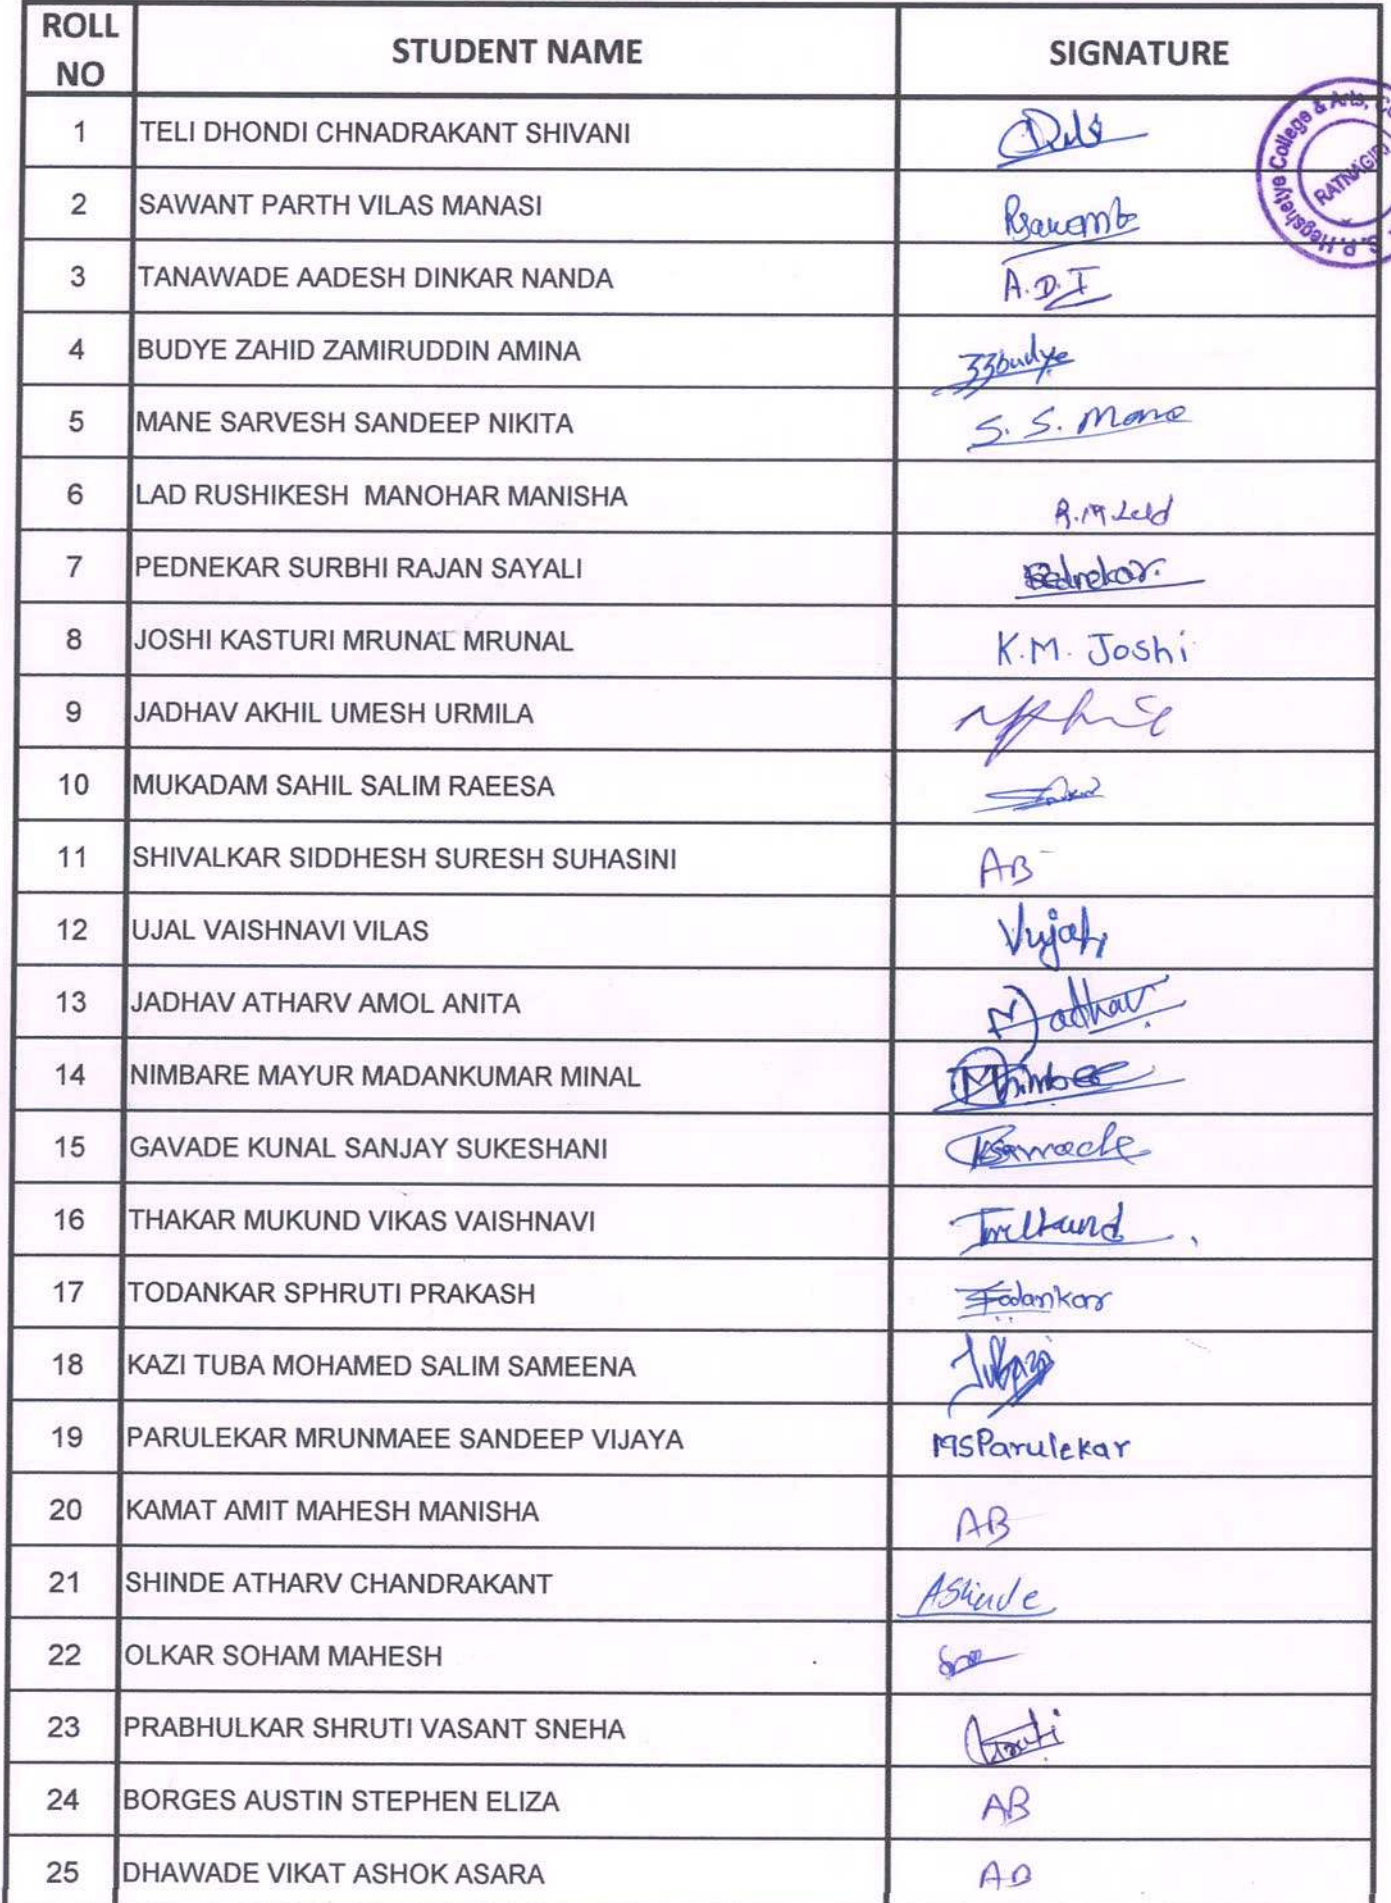 ROLL NO STUDENT NAME SIGNATURE
1 TELI DHONDI CHNADRAKANT SHIVANI
S. P. Hegshetye College & Arts,
RATNAGIRI
2 SAWANT PARTH VILAS MANASI
3 TANAWADE AADESH DINKAR NANDA A.D.T
4 BUDYE ZAHID ZAMIRUDDIN AMINA ZZbudye
5 MANE SARVESH SANDEEP NIKITA S. S. Mane
6 LAD RUSHIKESH MANOHAR MANISHA R.M.Lad
7 PEDNEKAR SURBHI RAJAN SAYALI
8 JOSHI KASTURI MRUNAL MRUNAL K.M. Joshi
9 JADHAV AKHIL UMESH URMILA
10 MUKADAM SAHIL SALIM RAEESA
11 SHIVALKAR SIDDHESH SURESH SUHASINI AB
12 UJAL VAISHNAVI VILAS
13 JADHAV ATHARV AMOL ANITA
14 NIMBARE MAYUR MADANKUMAR MINAL
15 GAVADE KUNAL SANJAY SUKESHANI
16 THAKAR MUKUND VIKAS VAISHNAVI
17 TODANKAR SPHRUTI PRAKASH
18 KAZI TUBA MOHAMED SALIM SAMEENA
19 PARULEKAR MRUNMAEE SANDEEP VIJAYA MSParulekar
20 KAMAT AMIT MAHESH MANISHA AB
21 SHINDE ATHARV CHANDRAKANT AShinde
22 OLKAR SOHAM MAHESH
23 PRABHULKAR SHRUTI VASANT SNEHA
24 BORGES AUSTIN STEPHEN ELIZA AB
25 DHAWADE VIKAT ASHOK ASARA AB